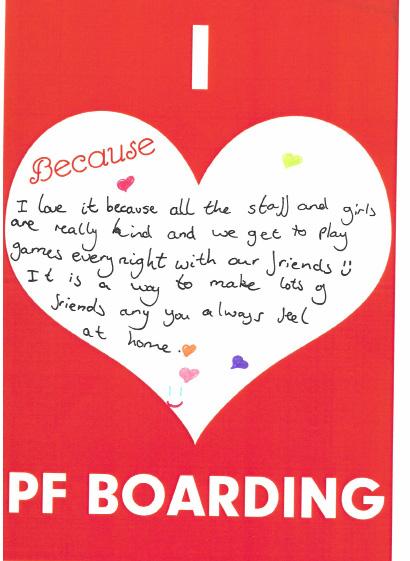 I
Because
I love it because all the staff and girls
are really kind and we get to play
games every night with our friends
It is a way to make lots of
friends any you always feel
at home.
PF BOARDING